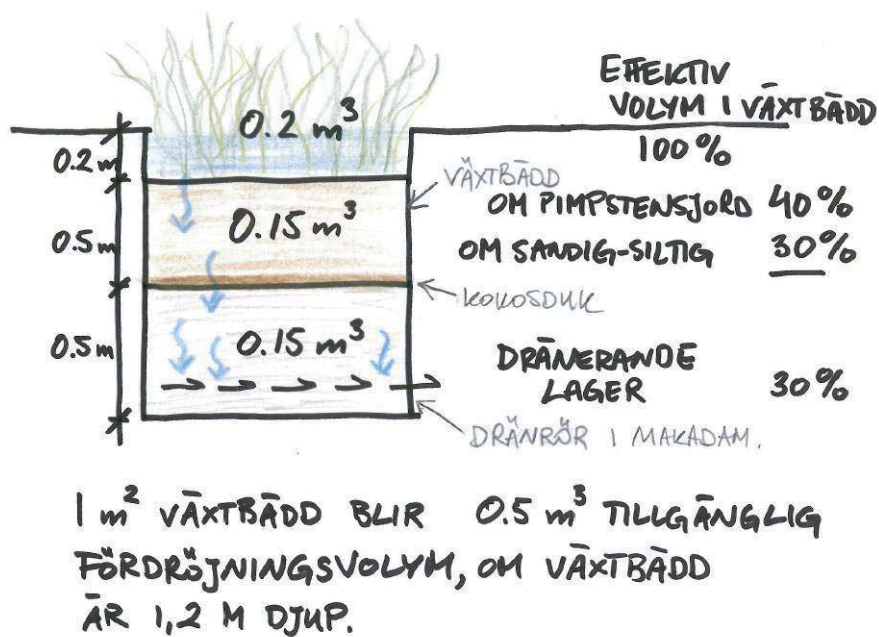 EFFEKTIV
VOLYM I VÄXTBÄDD
0.2 m³
100%
0.2 m
VÄXTBÄDD
OM PIMPSTENSJORD 40%
0.15 m³
0.5 m
OM SANDIG-SILTIG 30%
KOKOSDUK
0.15 m³
0.5 m
DRÄNERANDE
LAGER 30%
DRÄNRÖR I MAKADAM.
1 m² VÄXTBÄDD BLIR 0.5 m³ TILLGÄNGLIG
FÖRDRÖJNINGSVOLYM, OM VÄXTBÄDD
ÄR 1,2 M DJUP.